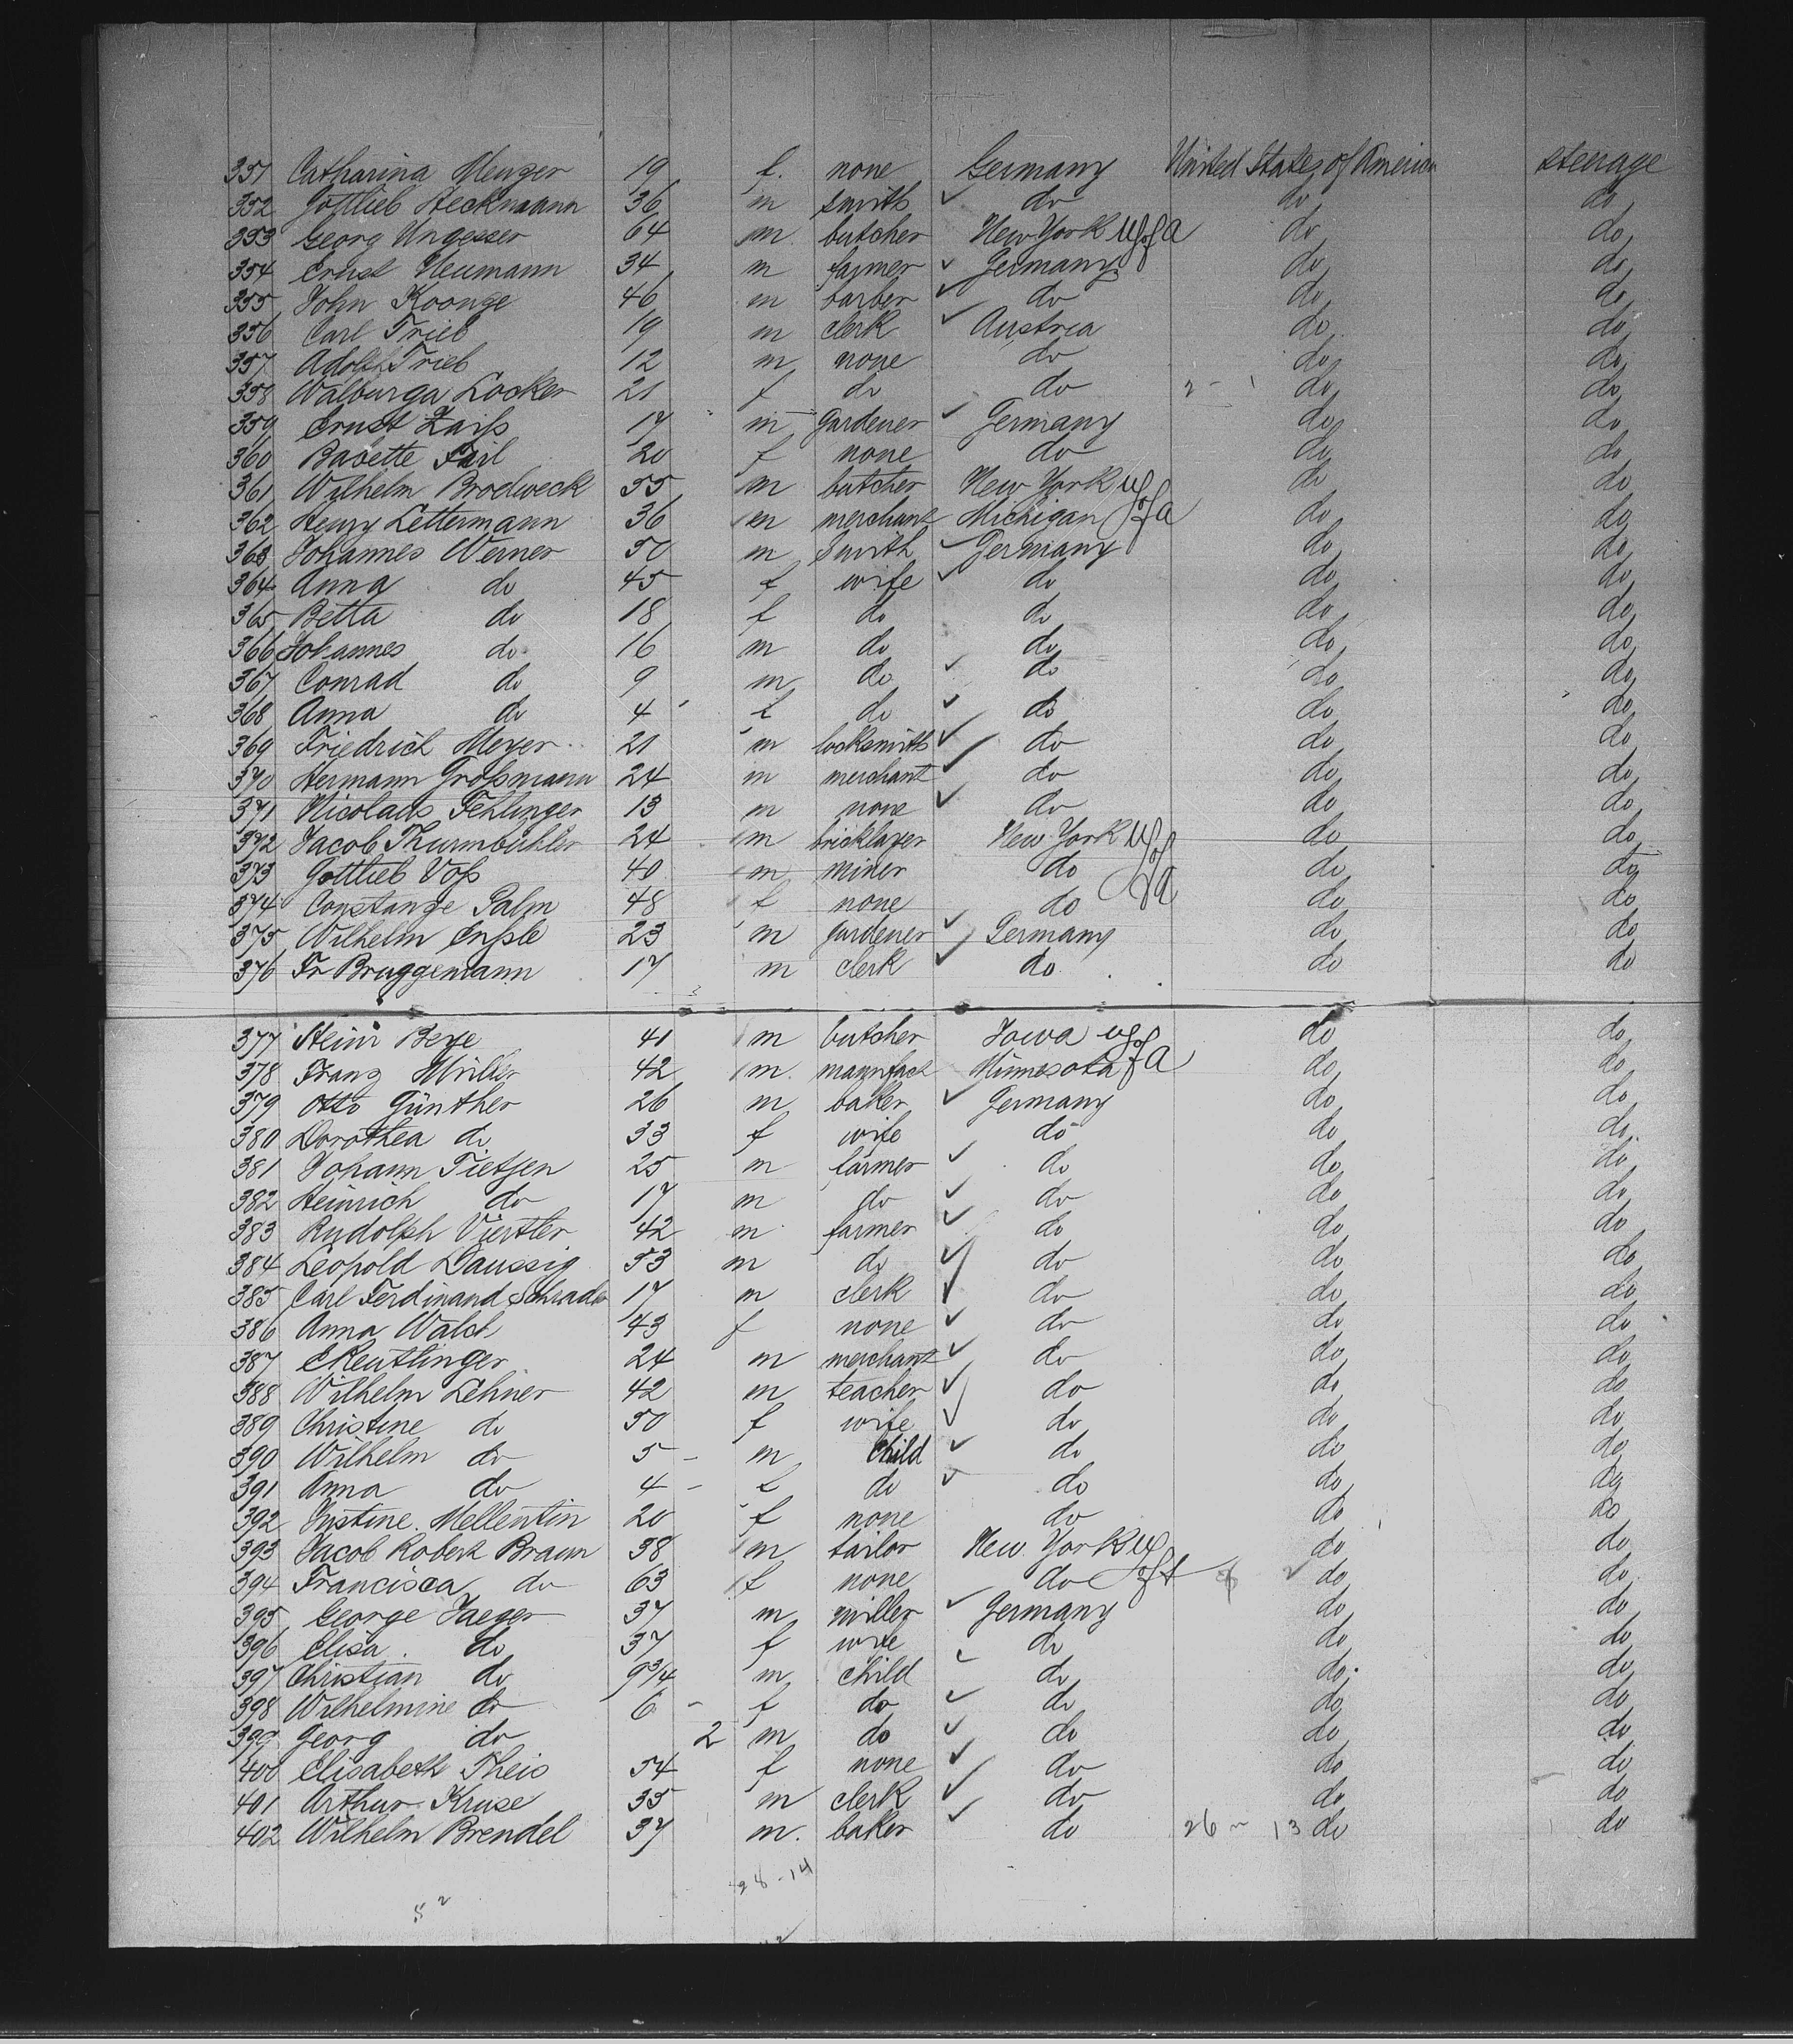 351 Catharina Menzer 19 f. none Germany United States of America steerage
352 Gottlieb Heckmann 36 m smith do do do
353 Georg Ungesser 64 m butcher New York U S of A do do
354 Ernst Neumann 34 m farmer Germany do do
355 John Koonge 46 m barber do do do
356 Carl Trieb 19 m clerk Austria do do
357 Adolf Trieb 12 m none do do do
358 Walburga Locker 21 f do do 2 - 1 do do
359 Ernst Zaiß 17 m gardener Germany do do
360 Babette 20 f none do do do
361 Wilhelm Brodweck 55 m butcher New York U S do do
362 Henry Lettermann 36 m merchant Michigan of A do do
363 Johannes Werner 50 m smith Germany do do
364 Anna do 45 f wife do do do
365 Betta do 18 f do do do do
366 Johannes do 16 m do do do do
367 Conrad do 9 m do do do do
368 Anna do 4 f do do do do
369 Friedrich Meyer 21 m locksmith do do do
370 Hermann Großmann 24 m merchant do do do
371 Nicolaus Fehlinger 13 m none do do do
372 Jacob Thurmbühler 24 m bricklayer New York U S do do
373 Gottlieb Voß 40 m miner do of do do
374 Constanze Palm 48 f none do A do do
375 Wilhelm Enßle 23 m gardener Germany do do
376 Fr Bruggemann 17 m clerk do do do
377 Heinr Beye 41 m butcher Iowa U S do do
378 Franz Müller 42 m. manufact Minnesota of A do do
379 Otto Günther 26 m baker Germany do do
380 Dorothea do 33 f wife do do do
381 Johann Tietjen 25 m farmer do do do
382 Heinrich do 17 m do do do do
383 Rudolph Viertler 42 m farmer do do do
384 Leopold Daussig 53 m do do do do
385 Carl Ferdinand Schrader 17 m clerk do do do
386 Anna Walch 43 f none do do do
387 E Reutlinger 24 m merchant do do do
388 Wilhelm Lehner 42 m teacher do do do
389 Christine do 50 f wife do do do
390 Wilhelm do 5 - m child do do do
391 Anna do 4 - f do do do do
392 Justine Mellentin 20 f none do do do
393 Jacob Robert Braun 38 m tailor New York U S do do
394 Francisca do 63 f none do of A do do
395 George Jaeger 37 m miller Germany do do
396 Elisa do 37 f wife do do do
397 Christian do 9 3/4 m child do do do
398 Wilhelmine do 6 - f do do do do
399 Georg do 2 m do do do do
400 Elisabeth Theis 54 f none do do do
401 Arthur Kruse 35 m clerk do do do
402 Wilhelm Brendel 37 m. baker do 26 - 13 do do
28 - 14
52